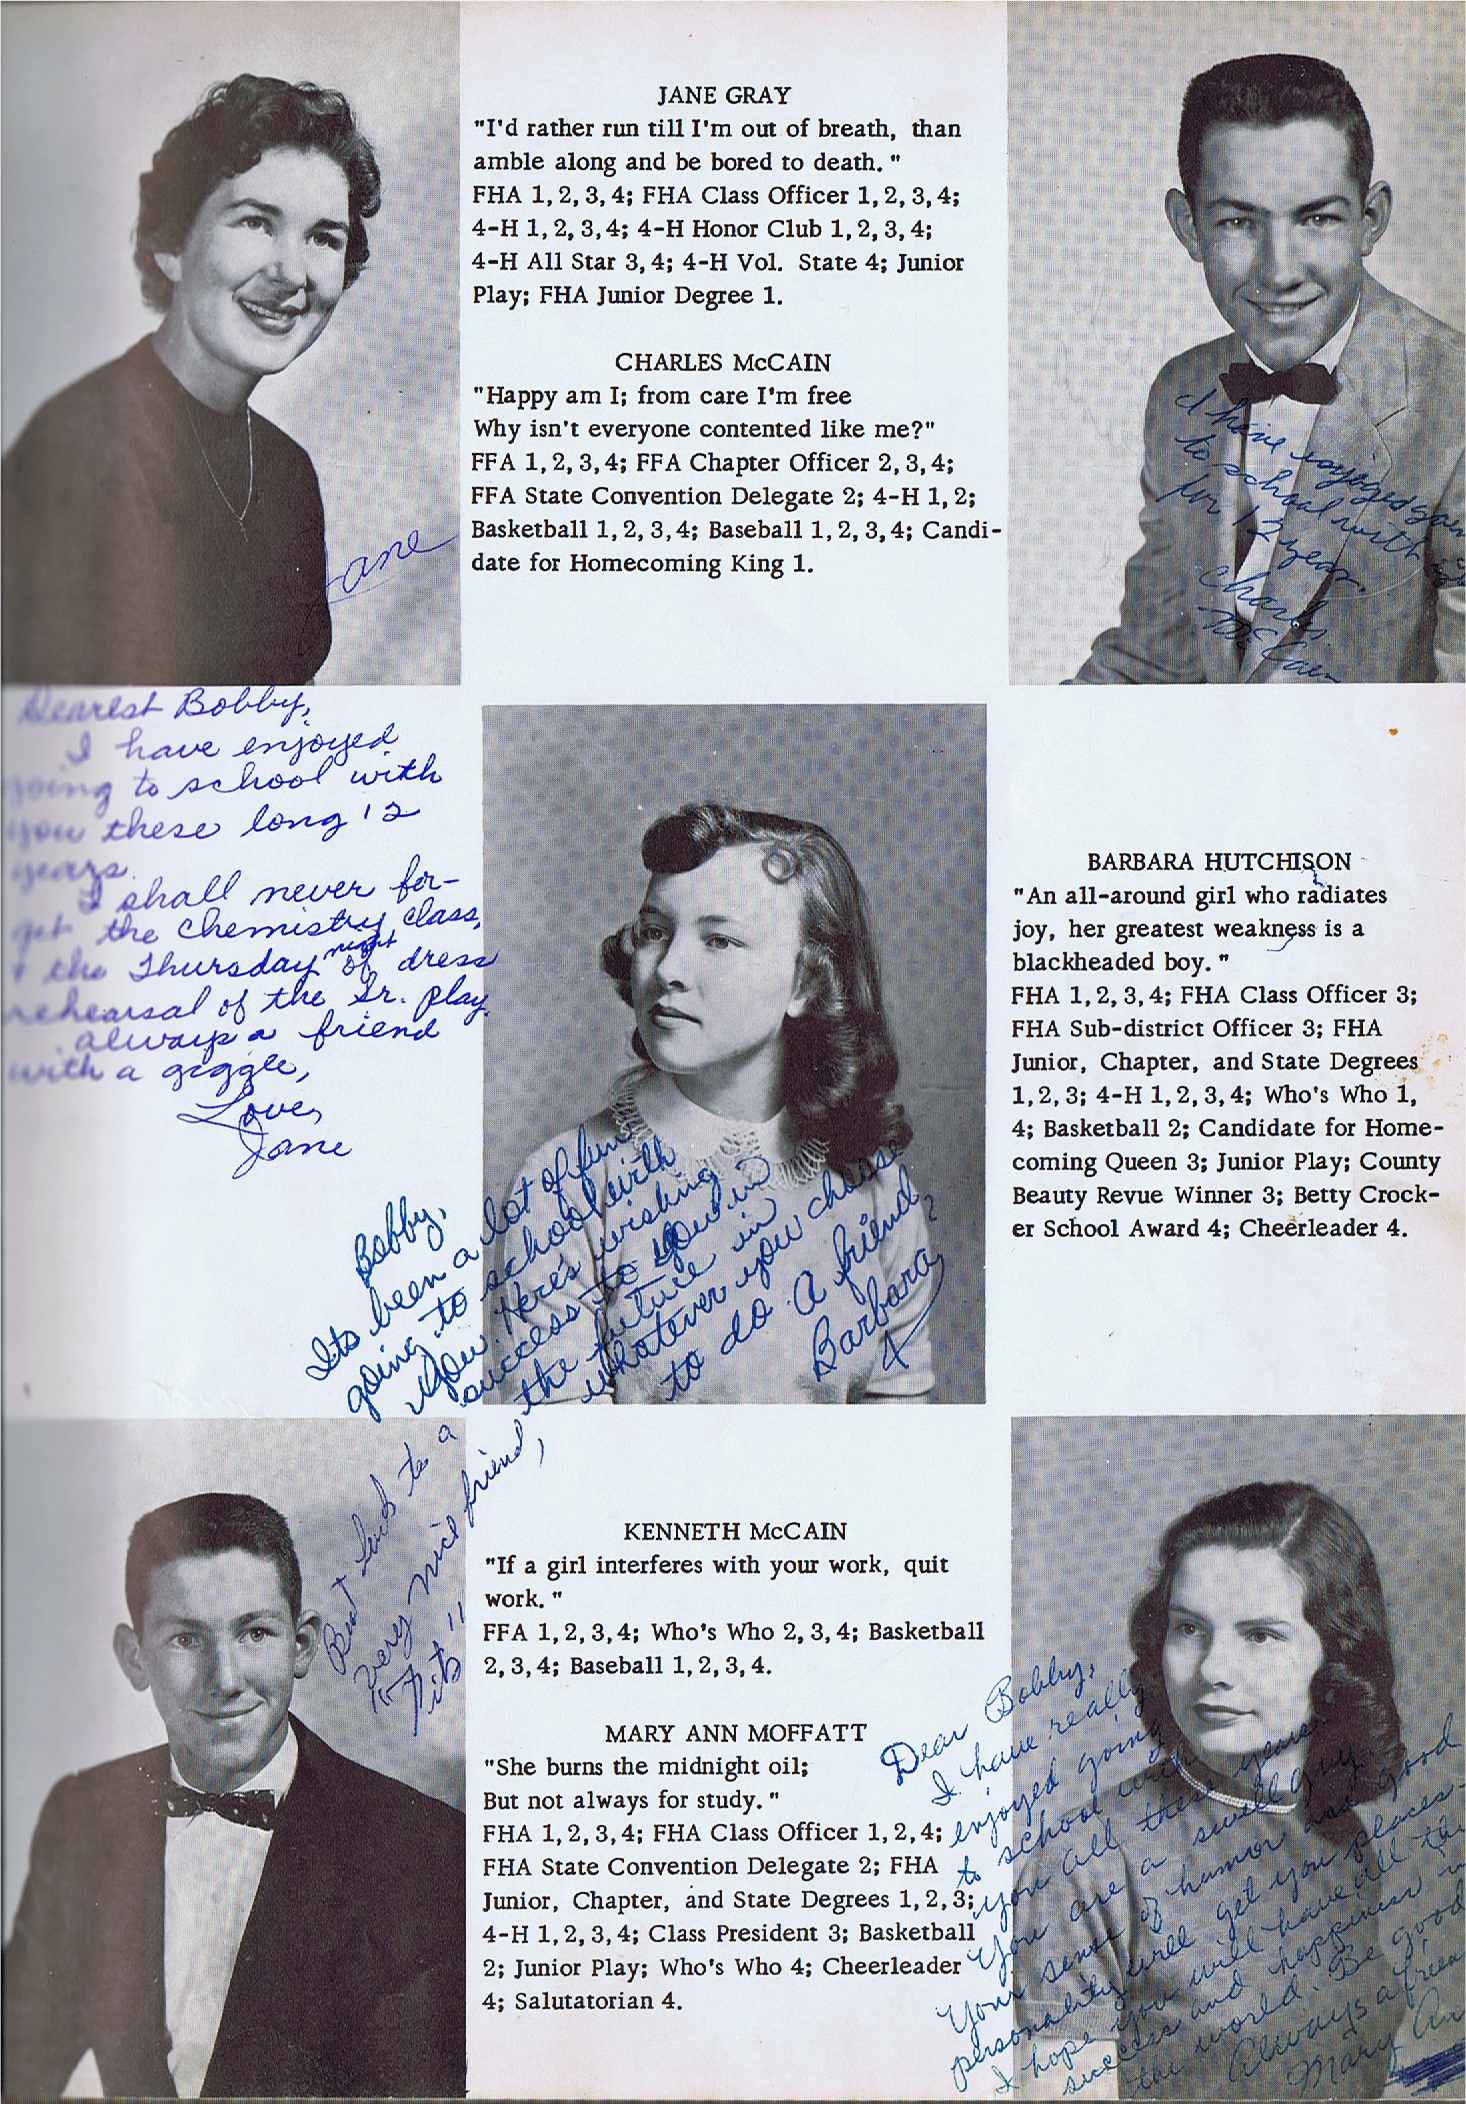 JANE GRAY
"I'd rather run till I'm out of breath, than
amble along and be bored to death."
FHA 1, 2, 3, 4; FHA Class Officer 1, 2, 3, 4;
4-H 1, 2, 3, 4; 4-H Honor Club 1, 2, 3, 4;
4-H All Star 3, 4; 4-H Vol. State 4; Junior
Play; FHA Junior Degree 1.
CHARLES McCAIN
"Happy am I; from care I'm free
Why isn't everyone contented like me?"
FFA 1, 2, 3, 4; FFA Chapter Officer 2, 3, 4;
FFA State Convention Delegate 2; 4-H 1, 2;
Basketball 1, 2, 3, 4; Baseball 1, 2, 3, 4; Candi-
date for Homecoming King 1.
Jane
I have enjoyed
to school with
for 12 years.
Charles
McCain
Dearest Bobby,
I have enjoyed
going to school with
you these long 12
years.
I shall never for-
get the chemistry class,
+ the Thursday night of dress
rehearsal of the Sr. play.
always a friend
with a giggle,
Love,
Jane
BARBARA HUTCHISON
"An all-around girl who radiates
joy, her greatest weakness is a
blackheaded boy."
FHA 1, 2, 3, 4; FHA Class Officer 3;
FHA Sub-district Officer 3; FHA
Junior, Chapter, and State Degrees
1, 2, 3; 4-H 1, 2, 3, 4; Who's Who 1,
4; Basketball 2; Candidate for Home-
coming Queen 3; Junior Play; County
Beauty Revue Winner 3; Betty Crock-
er School Award 4; Cheerleader 4.
Bobby,
Its been a lot of fun
going to school with
you. Here's wishing
success to you in
the future in
whatever you choose
to do. A friend,
Barbara
Best luck to a
very nice friend,
"Nits"
KENNETH McCAIN
"If a girl interferes with your work, quit
work."
FFA 1, 2, 3, 4; Who's Who 2, 3, 4; Basketball
2, 3, 4; Baseball 1, 2, 3, 4.
MARY ANN MOFFATT
"She burns the midnight oil;
But not always for study."
FHA 1, 2, 3, 4; FHA Class Officer 1, 2, 4;
FHA State Convention Delegate 2; FHA
Junior, Chapter, and State Degrees 1, 2, 3;
4-H 1, 2, 3, 4; Class President 3; Basketball
2; Junior Play; Who's Who 4; Cheerleader
4; Salutatorian 4.
Dear Bobby,
I have really
enjoyed going
to school with
you all these years.
You are a swell guy
Your sense of humor and good
personality will get you places.
I hope you will have all the
success and happiness in
the world. Be good
Always a friend
Mary Ann